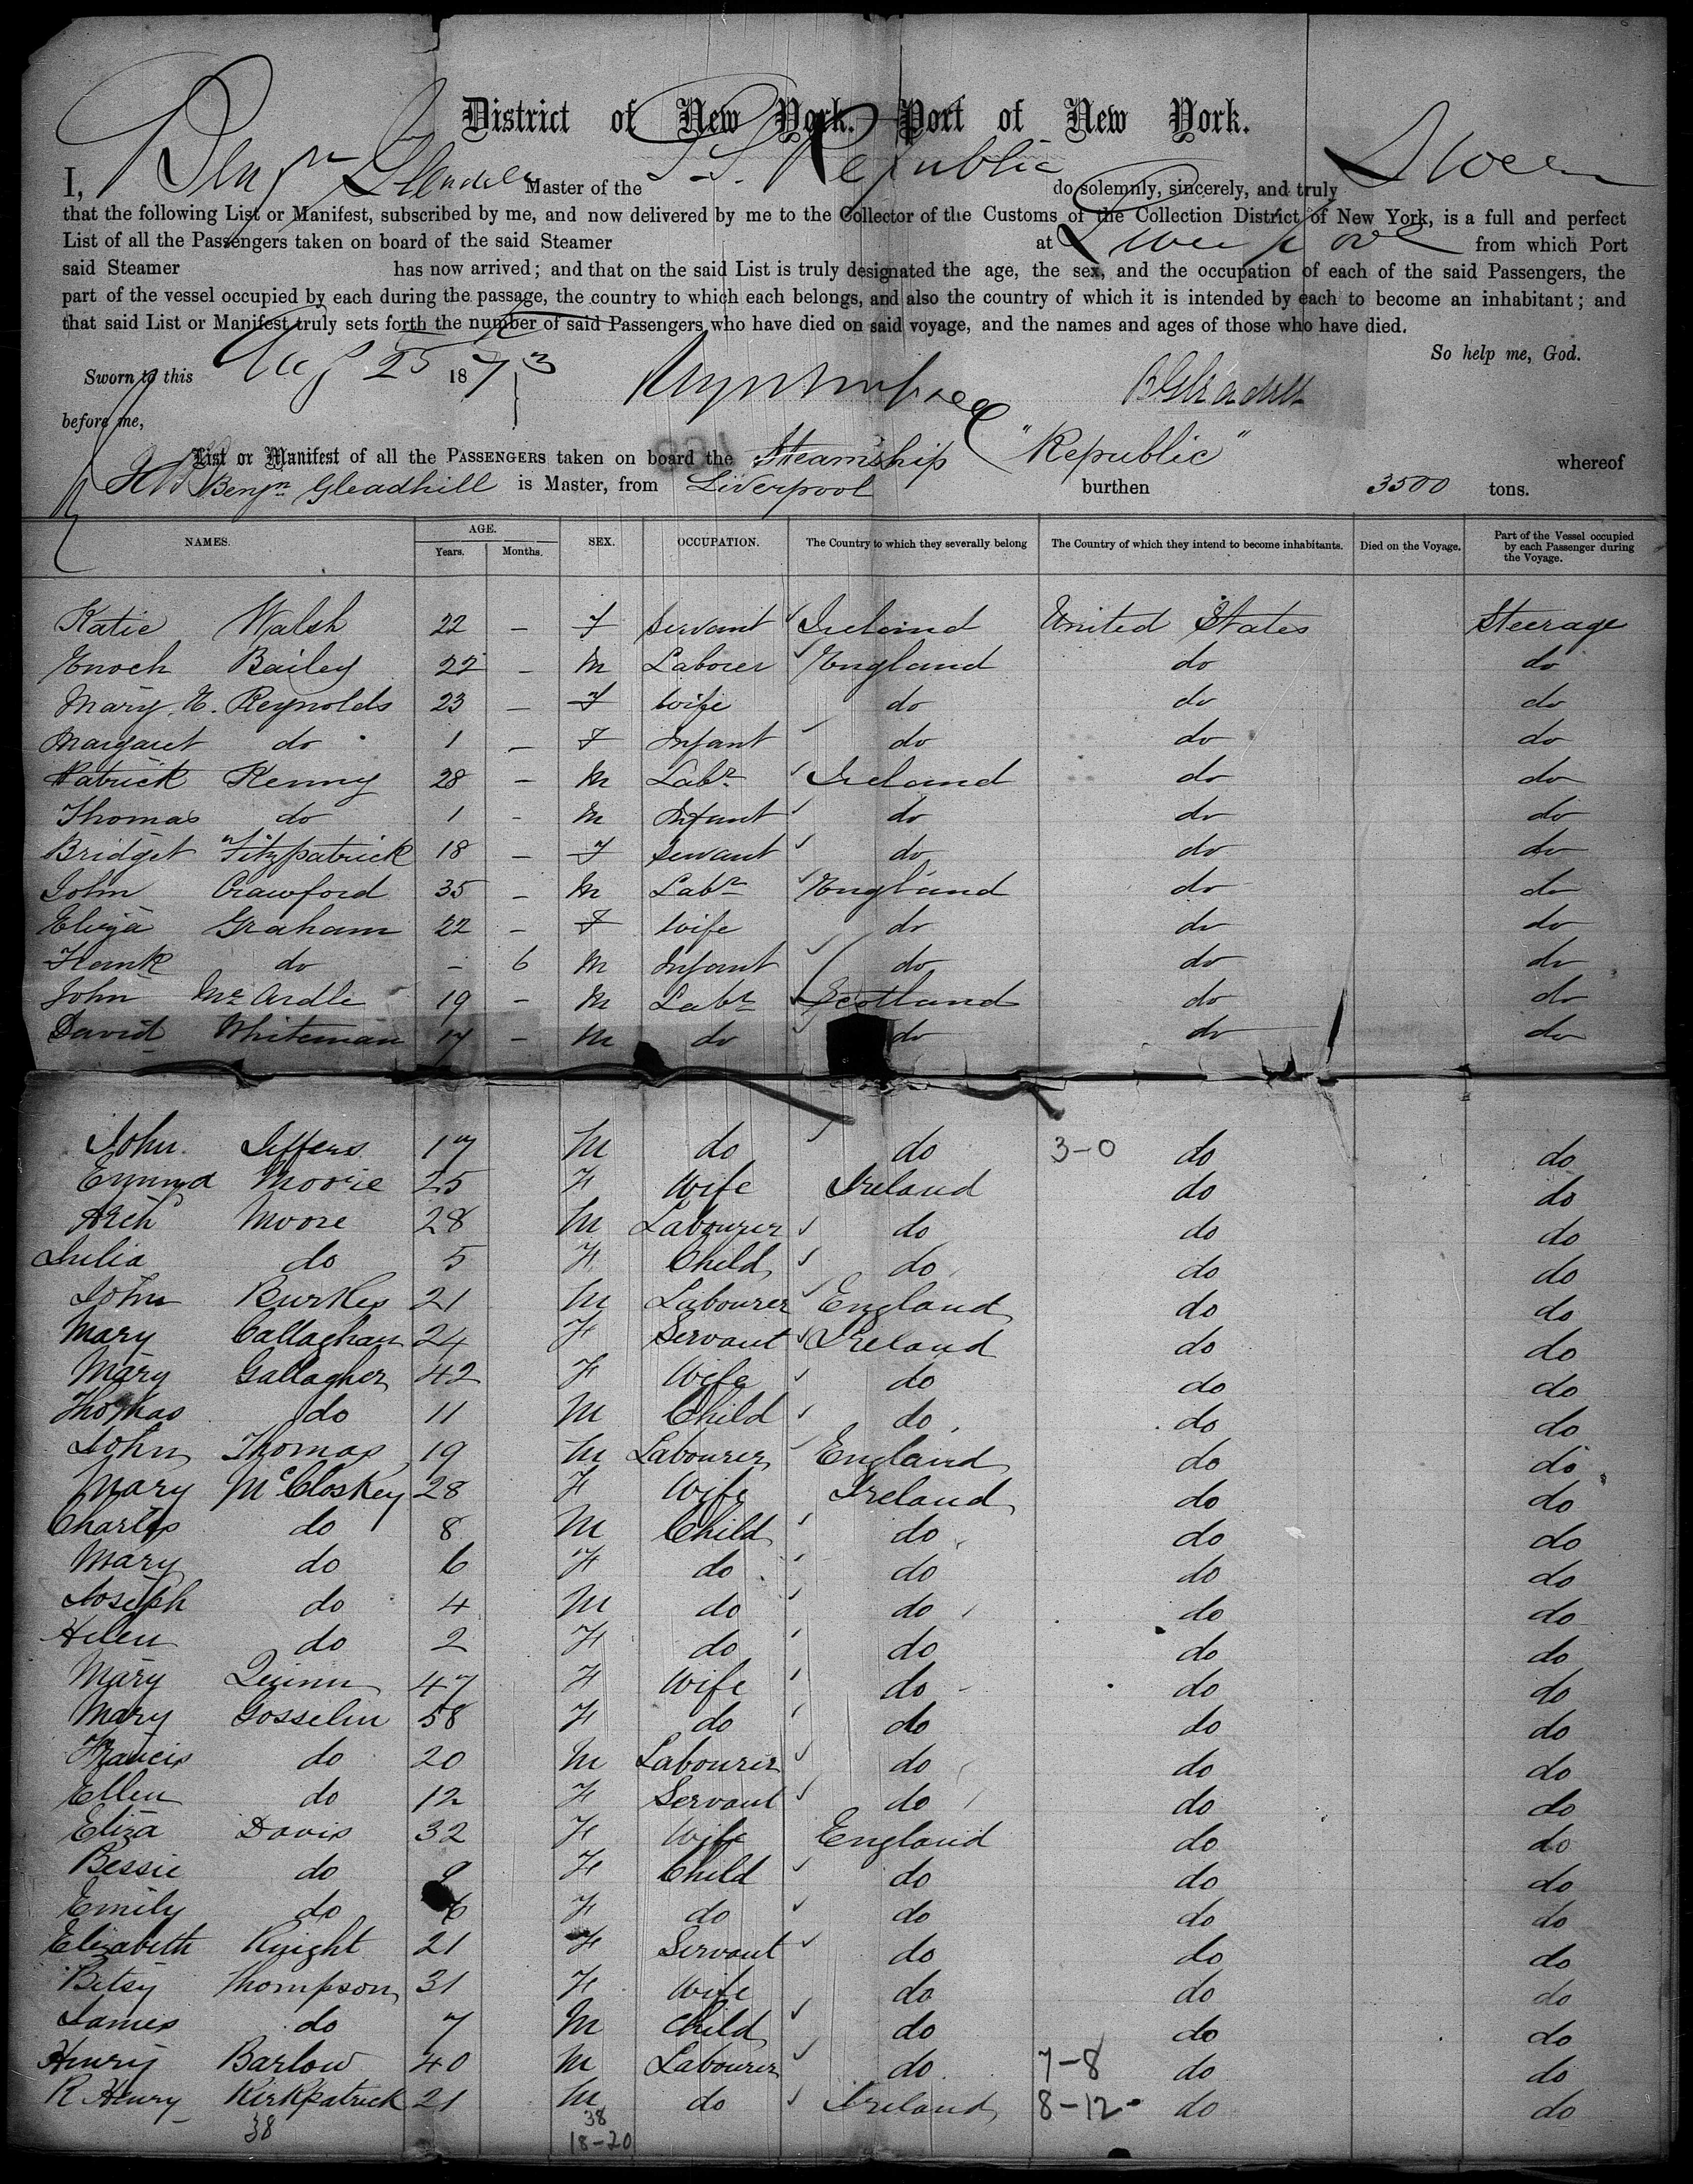 District of New York. Port of New York.
I, Benjn Gleadhill Master of the S.S. Republic do solemnly, sincerely, and truly Swear
that the following List or Manifest, subscribed by me, and now delivered by me to the Collector of the Customs of the Collection District of New York, is a full and perfect
List of all the Passengers taken on board of the said Steamer at Liverpool from which Port
said Steamer has now arrived; and that on the said List is truly designated the age, the sex, and the occupation of each of the said Passengers, the
part of the vessel occupied by each during the passage, the country to which each belongs, and also the country of which it is intended by each to become an inhabitant; and
that said List or Manifest truly sets forth the number of said Passengers who have died on said voyage, and the names and ages of those who have died.
So help me, God.
Sworn to this Aug 25 1873
B Gleadhill
before me,
List or Manifest of all the PASSENGERS taken on board the Steamship "Republic" whereof
Benjn Gleadhill is Master, from Liverpool burthen 3500 tons.
NAMES. AGE. Years. Months. SEX. OCCUPATION. The Country to which they severally belong The Country of which they intend to become inhabitants. Died on the Voyage. Part of the Vessel occupied by each Passenger during the Voyage.
Katie Walsh 22 - F Servant Ireland United States Steerage
Enoch Bailey 22 - M Laborer England do do
Mary E. Reynolds 23 - F Wife do do do
Margaret do 1 - F Infant do do do
Patrick Kenny 28 - M Labr Ireland do do
Thomas do 1 - M Infant do do do
Bridget Fitzpatrick 18 - F Servant do do do
John Crawford 35 - M Labr England do do
Eliza Graham 22 - F Wife do do do
Frank do - 6 M Infant do do do
John McArdle 19 - M Labr Scotland do do
David Whiteman 17 - M do do do do
John Jeffers 17 M do do 3-0 do do
Emma Moore 25 F Wife Ireland do do
Arch Moore 28 M Labourer do do do
Julia do 5 F Child do do do
John Burkes 21 M Labourer England do do
Mary Callaghan 24 F Servant Ireland do do
Mary Gallagher 42 F Wife do do do
Thomas do 11 M Child do do do
John Thomas 19 M Labourer England do do
Mary McCloskey 28 F Wife Ireland do do
Charles do 8 M Child do do do
Mary do 6 F do do do do
Joseph do 4 M do do do do
Helen do 2 F do do do do
Mary Quinn 47 F Wife do do do
Mary Gosselin 58 F do do do do
Francis do 20 M Labourer do do do
Ellen do 12 F Servant do do do
Eliza Davis 32 F Wife England do do
Bessie do 9 F Child do do do
Emily do 6 F do do do do
Elizabeth Knight 21 F Servant do do do
Betsy Thompson 31 F Wife do do do
James do 7 M Child do do do
Henry Barlow 40 M Labourer do 7-8 do do
R Henry Kirkpatrick 21 M do Ireland 8-12- do do
38 38
18-20